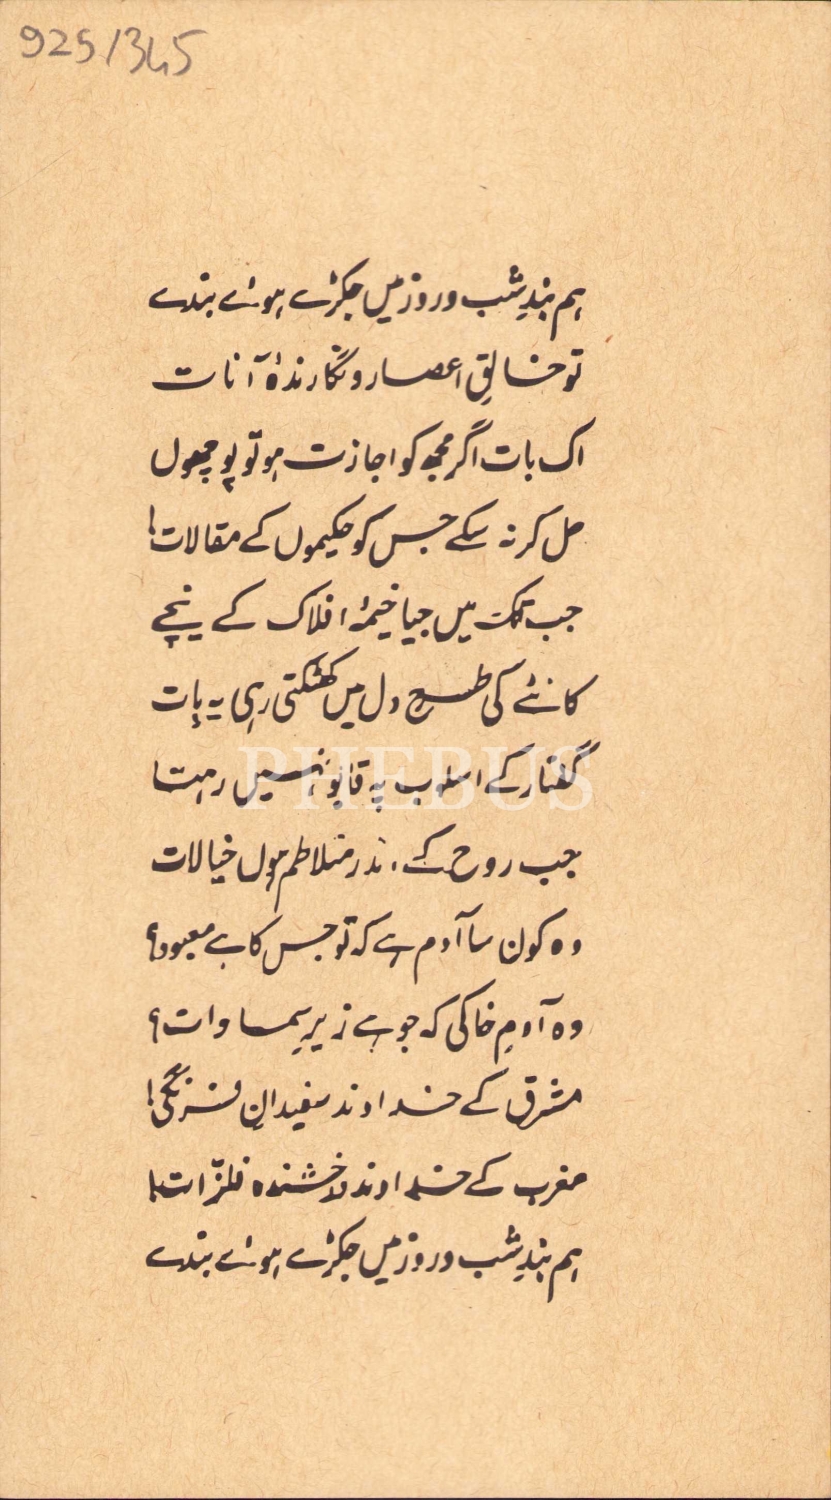 925/345
ہم بندِ شب و روز میں جکڑے ہوئے بندے
تو خالقِ اعصار و نگارندۂ آنات
اک بات اگر مجھ کو اجازت ہو تو پوچھوں
حل کر نہ سکے جس کو حکیموں کے مقالات!
جب تک میں جیا خیمۂ افلاک کے نیچے
کانٹے کی طرح دل میں کھٹکتی رہی یہ بات
گفتار کے اسلوب پہ قابو نہیں رہتا
PHEBUS
جب روح کے اندر متلاطم ہوں خیالات
وہ کون سا آدم ہے کہ تو جس کا ہے معبود؟
وہ آدمِ خاکی کہ جو ہے زیرِ سماوات؟
مشرق کے خداوند سفیدانِ فرنگی!
مغرب کے خداوند درخشندہ فلزّات!
ہم بندِ شب و روز میں جکڑے ہوئے بندے